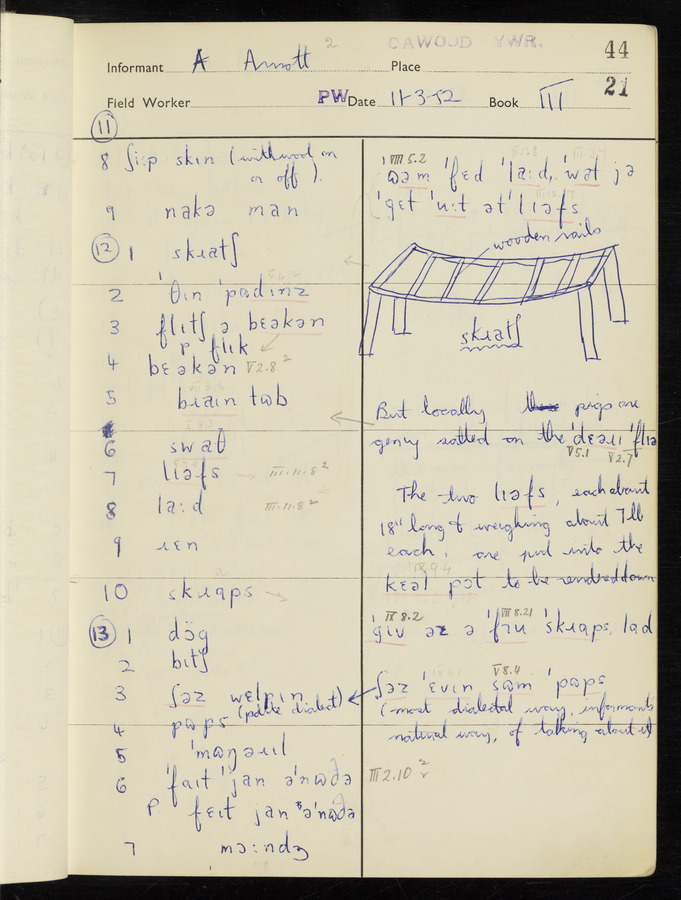 2 CAWOOD YWR. 44
Informant A Arnott Place
21
Field Worker PW Date 11-3-52 Book III
11
8 ʃiːp skɪn (with wool on
on or off).
9 nakə man
12 1 skɹatʃ
2 ˈθɪn ˈpʊdɪnz
3 flɪtʃ ə bɛəkən
p flɪk
4 bɛəkən V 2.8 ²
5 bɹaɪn tʊb
6 swaθ
7 lɪəfs III.11.8 ²
8 laːd III.11.8 ²
9 ɹɛn
10 skɹaps
13 1 dɔg
2 bɪtʃ
3 ʃəz wɛlpɪn
(polite dialect)
4 pʊps
5 ˈmʊŋəɹɪl
6 ˈfaɪt ˈjan əˈnʊðə
P fɛɪt jan əˈnʊðə
7 mɔːndʒ
VIII 5.2
sʊm ˈfɛd ˈlaːd, ˈwat jə
ˈgɛt ˈuːt ətˈlɪəfs
wooden rails
skɹatʃ
But locally pigs are
salted on the ˈdɛəɹɪ ˈflɪə
V 5.1 V 2.7
The two lɪəfs, each about
18" long & weighing about 7 lb
each, are put into the
kɛəl pɔt to be rendered down
IX 8.2 VII 8.21
ˈgiv əz ə ˈfɪu ˈskɹaps, lad
V 8.4
ʃəz ˈɛvɪn sʊm ˈpʊps
(most dialectal way, informant's
natural way, of talking about it)
III 2.10 ²